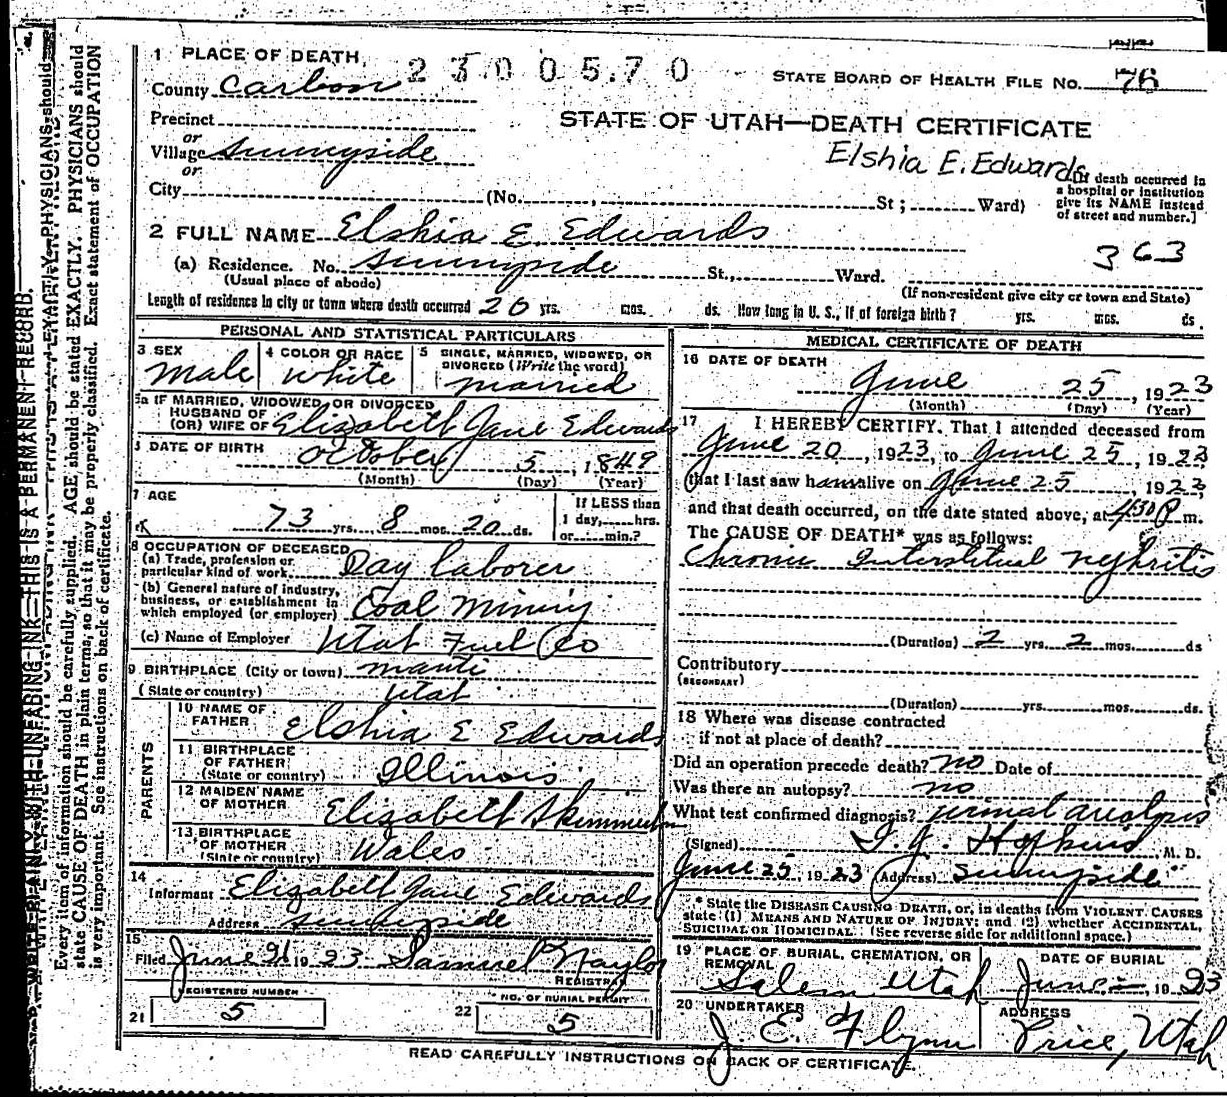 1 PLACE OF DEATH 2300570 STATE BOARD OF HEALTH FILE No. 76
County Carbon
Precinct
STATE OF UTAH—DEATH CERTIFICATE
or
Village Sunnyside
Elshia E. Edwards
or
City (No. , St ; Ward)
[If death occurred in
a hospital or institution
give its NAME instead
of street and number.]
2 FULL NAME Elshia E. Edwards
363
(a) Residence. No. Sunnyside St., Ward.
(Usual place of abode) (If non-resident give city or town and State)
Length of residence in city or town where death occurred 20 yrs. mos. ds. How long in U. S., if of foreign birth? yrs. mos. ds.
PERSONAL AND STATISTICAL PARTICULARS
3 SEX
Male
4 COLOR OR RACE
White
5 SINGLE, MARRIED, WIDOWED, OR
DIVORCED (Write the word)
Married
5a IF MARRIED, WIDOWED, OR DIVORCED
HUSBAND OF
(OR) WIFE OF Elizabeth Jane Edwards
DATE OF BIRTH October 5, 1849
(Month) (Day) (Year)
7 AGE
73 yrs. 8 mos. 20 ds.
If LESS than
1 day, hrs.
or min.?
8 OCCUPATION OF DECEASED
(a) Trade, profession or
particular kind of work Day Laborer
(b) General nature of industry,
business, or establishment in
which employed (or employer) Coal Mining
(c) Name of Employer Utah Fuel Co
9 BIRTHPLACE (City or town) Manti
(State or country) Utah
PARENTS
10 NAME OF
FATHER Elshia E Edwards
11 BIRTHPLACE
OF FATHER
(State or country) Illinois
12 MAIDEN NAME
OF MOTHER Elizabeth
13 BIRTHPLACE
OF MOTHER
(State or country) Wales
14
Informant Elizabeth Jane Edwards
Address Sunnyside
15
Filed June 1923 Samuel Naylor
REGISTRAR
REGISTERED NUMBER
21 5
NO. OF BURIAL PERMIT
22 5
MEDICAL CERTIFICATE OF DEATH
16 DATE OF DEATH
June 25, 1923
(Month) (Day) (Year)
17 I HEREBY CERTIFY, That I attended deceased from
June 20, 1923, to June 25, 1923
that I last saw him alive on June 25, 1923
and that death occurred, on the date stated above, at 4:30 P m.
The CAUSE OF DEATH* was as follows:
Chronic Interstitual Nephritis
(Duration) 2 yrs. 2 mos. ds
Contributory
(SECONDARY)
(Duration) yrs. mos. ds.
18 Where was disease contracted
if not at place of death?
Did an operation precede death? no Date of
Was there an autopsy? no
What test confirmed diagnosis?
(Signed) Hopkins, M. D.
June 25, 1923 (Address) Sunnyside
* State the DISEASE CAUSING DEATH, or, in deaths from VIOLENT CAUSES
state (1) MEANS AND NATURE OF INJURY; and (2) whether ACCIDENTAL,
SUICIDAL OR HOMICIDAL. (See reverse side for additional space.)
19 PLACE OF BURIAL, CREMATION, OR
REMOVAL
Salem Utah
DATE OF BURIAL
June 1923
20 UNDERTAKER
J. E. Flynn
ADDRESS
Price, Utah
READ CAREFULLY INSTRUCTIONS ON BACK OF CERTIFICATE.
Every item of information should be carefully supplied. AGE should be stated EXACTLY. PHYSICIANS should
state CAUSE OF DEATH in plain terms, so that it may be properly classified. Exact statement of OCCUPATION
is very important. See instructions on back of certificate.